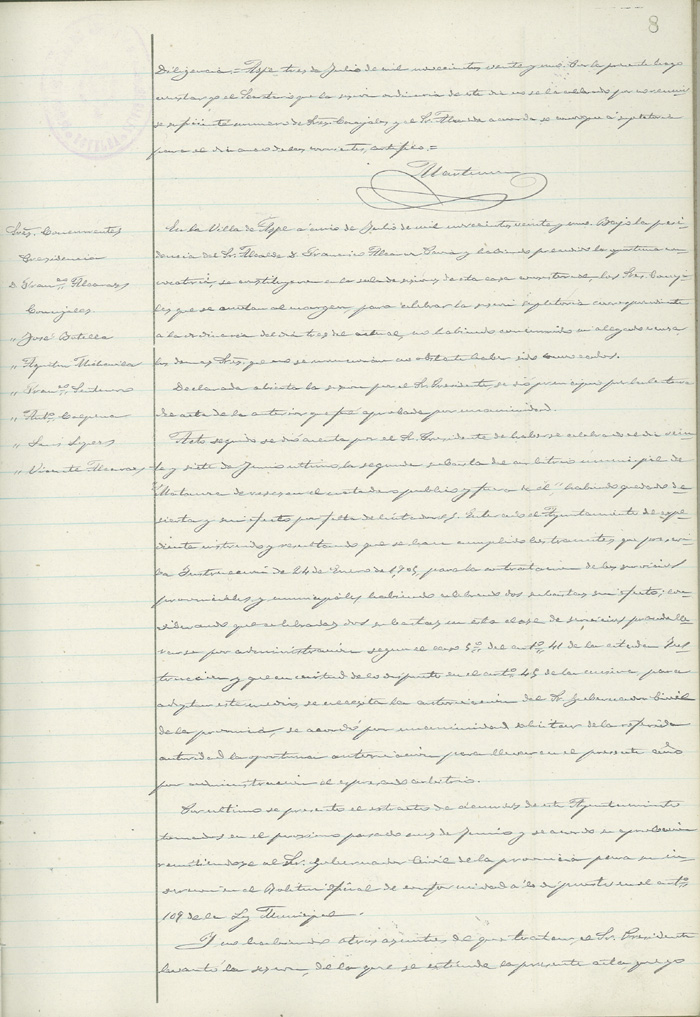 8
Diligencia = Aspe tres de Julio de mil novecientos veinte y uno. Por la presente hago
constar yo el Secretario que la sesion ordinaria de este dia no se ha celebrado por no reunir
se suficiente numero de Sres. Concejales y el Sr. Alcalde acordó se convoque a supletoria
para el dia cinco de los corrientes, certifico. =
Sres. Concurrentes
Presidencia
D. Fran.co Alcaraz
Concejales
" José Botella
" Aquilino
" Fran.co
" Ant.o Cerpena
" Luis
" Vicente Alcaraz
En la Villa de Aspe a cinco de Julio de mil novecientos veinte y uno. Bajo la presi
dencia del Sr. Alcalde D. Francisco Alcaraz y habiendo precedido la oportuna con
vocatoria, se constituyeron en la sala de sesiones de esta casa consistorial, los Sres. Conceja
les que se anotan al margen, para celebrar la sesion supletoria correspondiente
a la ordinaria del dia tres del actual, no habiendo concurrido ni alegado excusa
los demas Sres. que no se mencionan no obstante haber sido convocados.
Declarada abierta la sesion por el Sr. Presidente, se dió principio por la lectura
del acta de la anterior que fué aprobada por unanimidad.
Acto seguido se dió cuenta por el Sr. Presidente de haberse celebrado el dia vein
te y siete de Junio ultimo la segunda subasta del arbitrio municipal de
"Matanza de reses en el matadero publico y fuera de él" habiendo quedado de
sierta y sin efecto por falta de licitadores. Enterado el Ayuntamiento del expe
diente instruido y resultando que se han cumplido los tramites que prescri
be la Instrucción de 24 de Enero de 1905, para la contratacion de los servicios
provinciales y municipales habiendo celebrado dos subastas sin efecto; con
siderando que celebradas dos subastas en esta clase de servicios puede lle
varse por administracion segun el caso 5.o del art.o 41 de la citada Ins
truccion y que en virtud de lo dispuesto en el art.o 45 de la misma, para
adoptar este medio, se necesita la autorizacion del Sr. Gobernador Civil
de la provincia, se acordó por unanimidad solicitar de la referida
autoridad la oportuna autorizacion para llevar en el presente año
por administracion el expresado arbitrio.
Por ultimo se presentó el extracto de acuerdos de este Ayuntamiento
tomados en el proximo pasado mes de Junio y se acordó su aprobacion
remitiendose al Sr. Gobernador Civil de la provincia para su in
sercion en el Boletin Oficial de conformidad a lo dispuesto en el art.o
109 de la Ley Municipal.
Y no habiendo otros asuntos de que tratar, el Sr. Presidente
levantó la sesion, de la que se extiende la presente acta, que yo